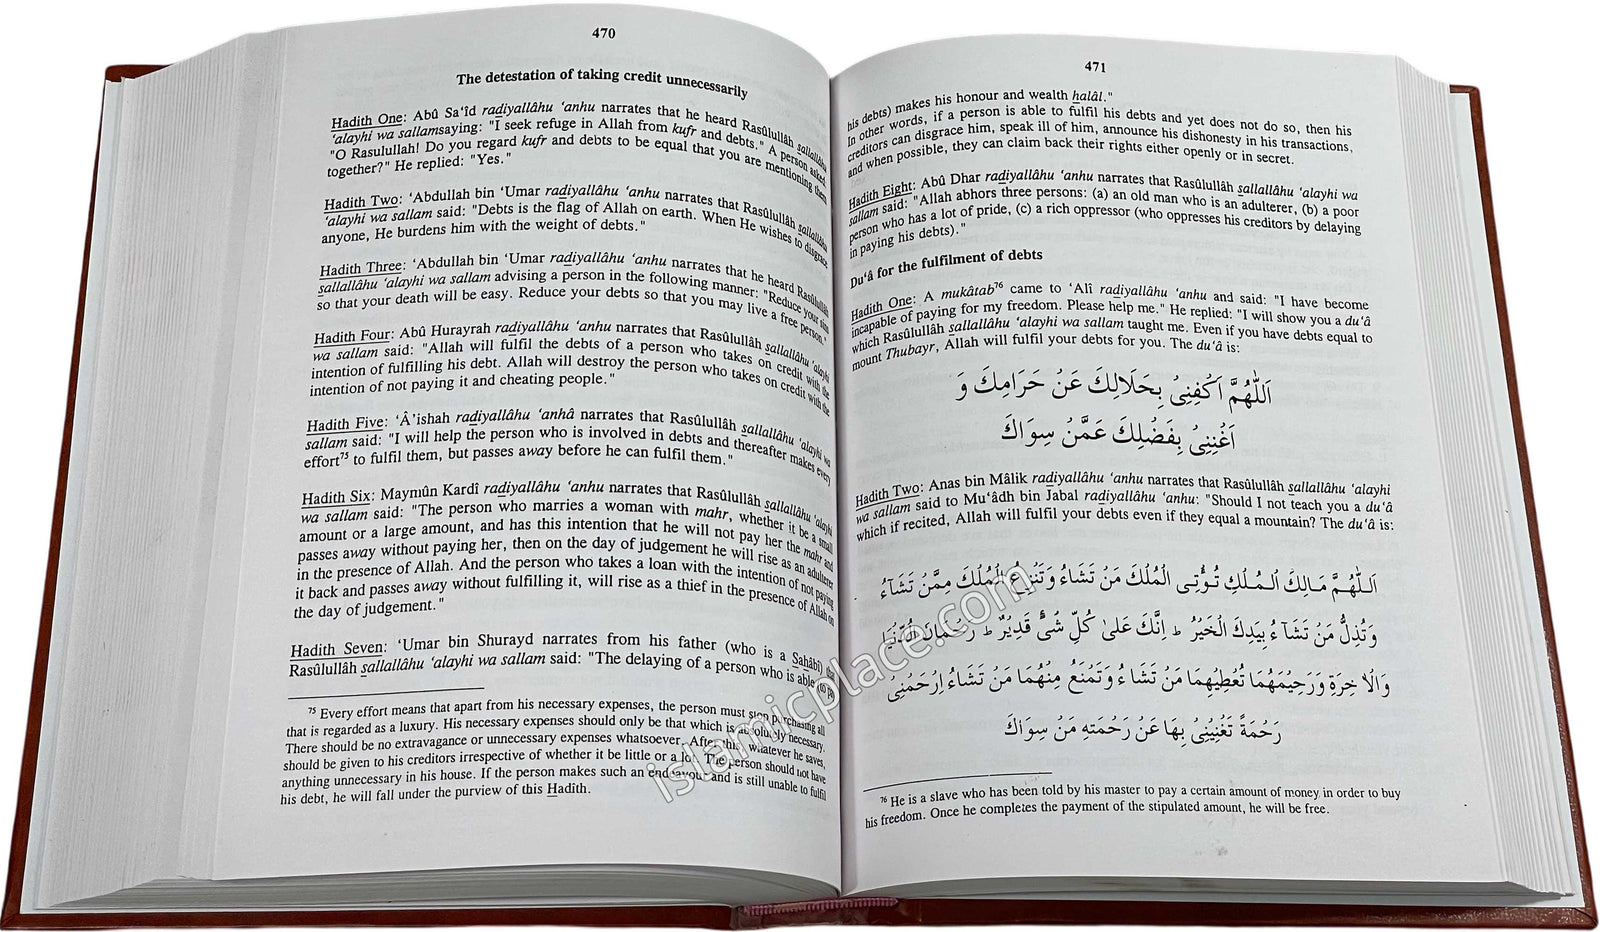 470
The detestation of taking credit unnecessarily
Hadith One: Abû Sa‘îd radiyallâhu ‘anhu narrates that he heard Rasûlullâh sallallâhu
‘alayhi wa sallamsaying: "I seek refuge in Allah from kufr and debts." A person asked,
"O Rasulullah! Do you regard kufr and debts to be equal that you are mentioning them
together?" He replied: "Yes."
Hadith Two: ‘Abdullah bin ‘Umar radiyallâhu ‘anhu narrates that Rasûlullâh sallallâhu
‘alayhi wa sallam said: "Debts is the flag of Allah on earth. When He wishes to disgrace
anyone, He burdens him with the weight of debts."
Hadith Three: ‘Abdullah bin ‘Umar radiyallâhu ‘anhu narrates that he heard Rasûlullâh
sallallâhu ‘alayhi wa sallam advising a person in the following manner: "Reduce your sins
so that your death will be easy. Reduce your debts so that you may live a free person."
Hadith Four: Abû Hurayrah radiyallâhu ‘anhu narrates that Rasûlullâh sallallâhu ‘alayhi
wa sallam said: "Allah will fulfil the debts of a person who takes on credit with the
intention of fulfilling his debt. Allah will destroy the person who takes on credit with the
intention of not paying it and cheating people."
Hadith Five: ‘Â’ishah radiyallâhu ‘anhâ narrates that Rasûlullâh sallallâhu ‘alayhi wa
sallam said: "I will help the person who is involved in debts and thereafter makes every
effort75 to fulfil them, but passes away before he can fulfil them."
Hadith Six: Maymûn Kardî radiyallâhu ‘anhu narrates that Rasûlullâh sallallâhu ‘alayhi
wa sallam said: "The person who marries a woman with mahr, whether it be a small
amount or a large amount, and has this intention that he will not pay her the mahr and
passes away without paying her, then on the day of judgement he will rise as an adulterer
in the presence of Allah. And the person who takes a loan with the intention of not paying
it back and passes away without fulfilling it, will rise as a thief in the presence of Allah on
the day of judgement."
Hadith Seven: ‘Umar bin Shurayd narrates from his father (who is a Sahâbî) that
Rasûlullâh sallallâhu ‘alayhi wa sallam said: "The delaying of a person who is able (to pay
75 Every effort means that apart from his necessary expenses, the person must stop purchasing all
that is regarded as a luxury. His necessary expenses should only be that which is absolutely necessary.
There should be no extravagance or unnecessary expenses whatsoever. After this, whatever he saves,
should be given to his creditors irrespective of whether it be little or a lot. The person should not have
anything unnecessary in his house. If the person makes such an endeavour and is still unable to fulfil
his debt, he will fall under the purview of this Hadîth.
471
his debts) makes his honour and wealth halâl."
In other words, if a person is able to fulfil his debts and yet does not do so, then his
creditors can disgrace him, speak ill of him, announce his dishonesty in his transactions,
and when possible, they can claim back their rights either openly or in secret.
Hadith Eight: Abû Dhar radiyallâhu ‘anhu narrates that Rasûlullâh sallallâhu ‘alayhi wa
sallam said: "Allah abhors three persons: (a) an old man who is an adulterer, (b) a poor
person who has a lot of pride, (c) a rich oppressor (who oppresses his creditors by delaying
in paying his debts)."
Du‘â for the fulfilment of debts
Hadith One: A mukâtab76 came to ‘Alî radiyallâhu ‘anhu and said: "I have become
incapable of paying for my freedom. Please help me." He replied: "I will show you a du‘â
which Rasûlullâh sallallâhu ‘alayhi wa sallam taught me. Even if you have debts equal to
mount Thubayr, Allah will fulfil your debts for you. The du‘â is:
اَللّٰهُمَّ اَكْفِنِىْ بِحَلَالِكَ عَنْ حَرَامِكَ وَ
اَغْنِنِىْ بِفَضْلِكَ عَمَّنْ سِوَاكَ
Hadith Two: Anas bin Mâlik radiyallâhu ‘anhu narrates that Rasûlullâh sallallâhu ‘alayhi
wa sallam said to Mu‘âdh bin Jabal radiyallâhu ‘anhu: "Should I not teach you a du‘â
which if recited, Allah will fulfil your debts even if they equal a mountain? The du‘â is:
اَللّٰهُمَّ مَالِكَ الْمُلْكِ تُؤْتِى الْمُلْكَ مَنْ تَشَاءُ وَتَنْزِعُ الْمُلْكَ مِمَّنْ تَشَاءُ
وَتُذِلُّ مَنْ تَشَاءُ بِيَدِكَ الْخَيْرُ ط اِنَّكَ عَلىٰ كُلِّ شَىْءٍ قَدِيْرٌ ط رَحْمَانَ الدُّنْيَا
وَالْاٰخِرَةِ وَرَحِيْمَهُمَا تُعْطِيْهِمَا مَنْ تَشَاءُ وَتَمْنَعُ مِنْهُمَا مَنْ تَشَاءُ اِرْحَمْنِىْ
رَحْمَةً تُغْنِيْنِىْ بِهَا عَنْ رَحْمَتِهِ مَنْ سِوَاكَ
76 He is a slave who has been told by his master to pay a certain amount of money in order to buy
his freedom. Once he completes the payment of the stipulated amount, he will be free.
islamicplace.com